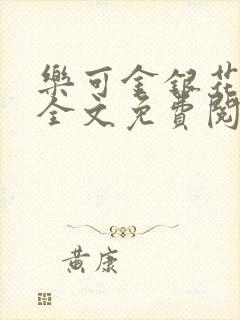 樂可金銀花
全文免費閱
黃康